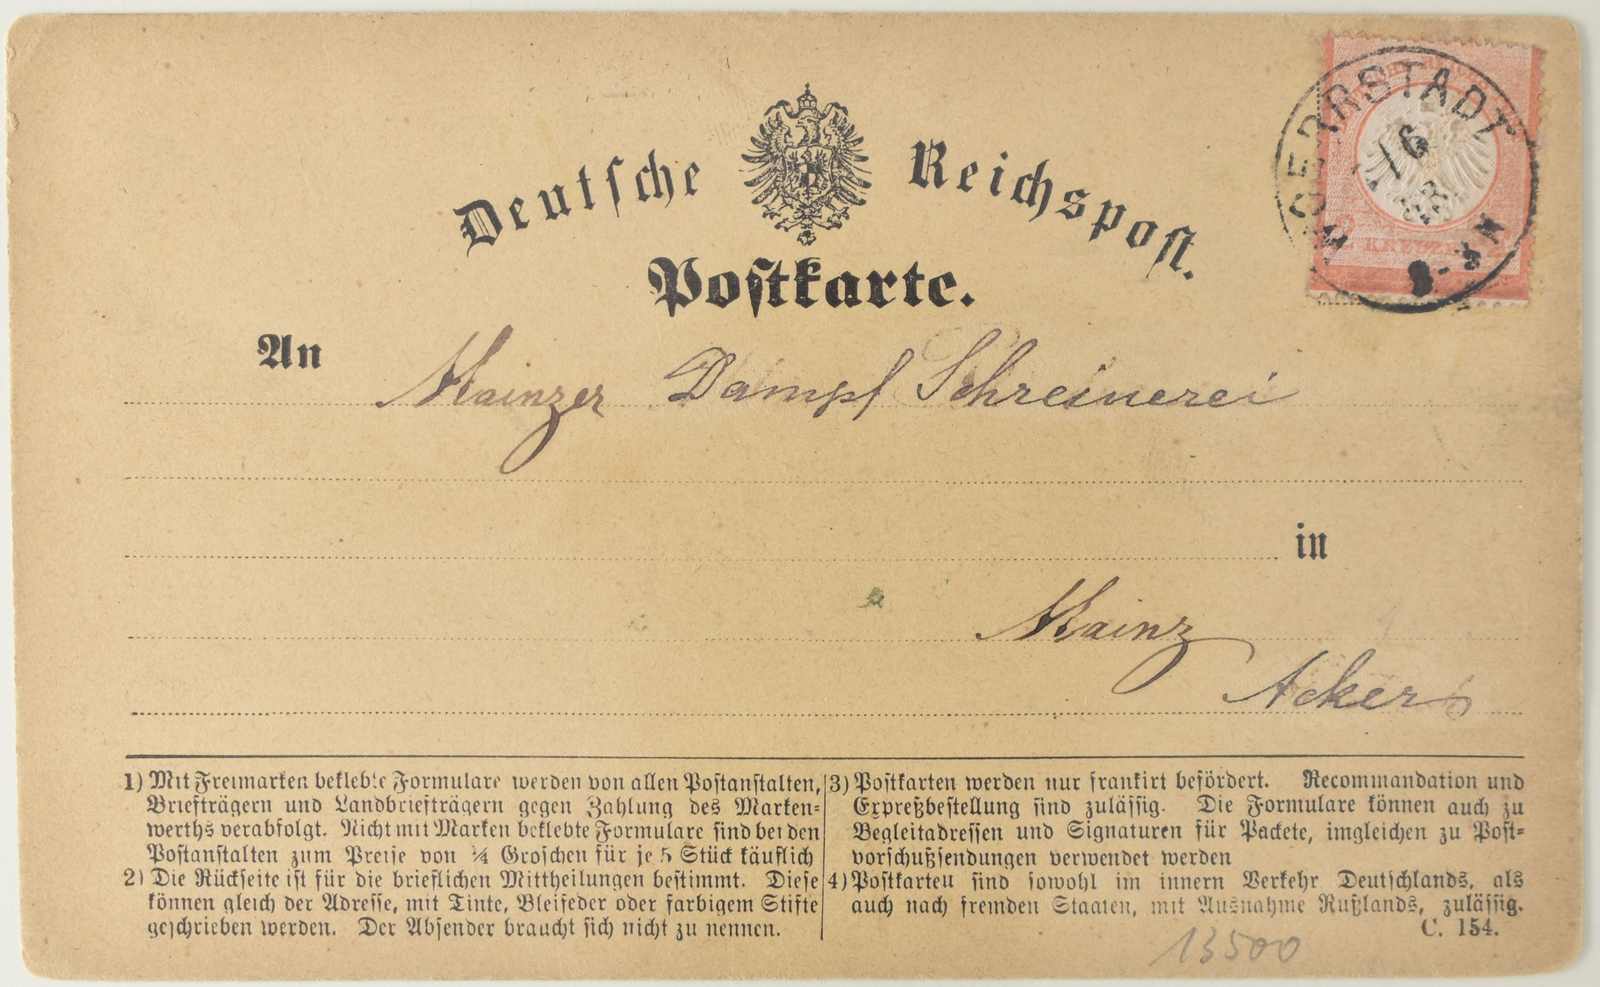 Deutsche Reichspost.
Postkarte.
WOERRSTADT
16
8
8-9 N
KREUZER
An Mainzer Dampf Schreinerei
in
Mainz
Acker
1) Mit Freimarken beklebte Formulare werden von allen Postanstalten,
Briefträgern und Landbriefträgern gegen Zahlung des Marken-
werths verabfolgt. Nicht mit Marken beklebte Formulare sind bei den
Postanstalten zum Preise von ¼ Groschen für je 5 Stück käuflich
2) Die Rückseite ist für die brieflichen Mittheilungen bestimmt. Diese
können gleich der Adresse, mit Tinte, Bleifeder oder farbigem Stifte
geschrieben werden. Der Absender braucht sich nicht zu nennen.
3) Postkarten werden nur frankirt befördert. Recommandation und
Expreßbestellung sind zulässig. Die Formulare können auch zu
Begleitadressen und Signaturen für Packete, imgleichen zu Post-
vorschußsendungen verwendet werden
4) Postkarten sind sowohl im innern Verkehr Deutschlands, als
auch nach fremden Staaten, mit Ausnahme Rußlands, zulässig.
C. 154.
13500